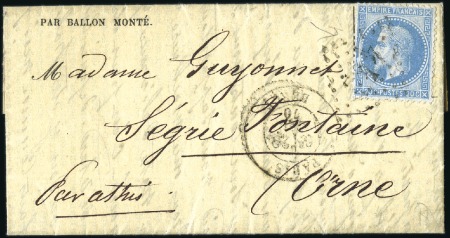 PAR BALLON MONTÉ.
EMPIRE FRANÇAIS
Madame Guyonnet
Ségrie Fontaine
PARIS
Par athis
Orne